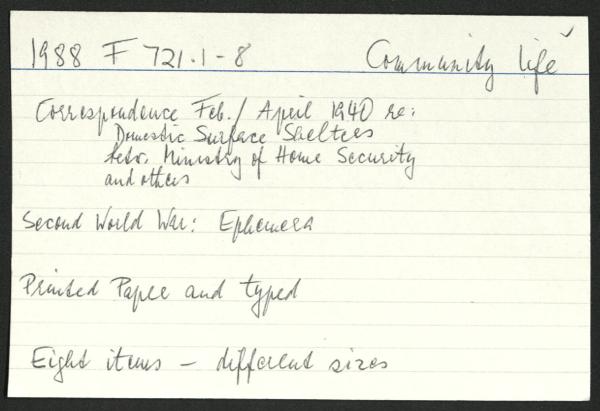 1988 F 721.1-8 Community life
Correspondence Feb./April 1940 re:
Domestic Surface Shelters
betw. Ministry of Home Security
and others
Second World War: Ephemera
Printed Paper and typed
Eight items - different sizes